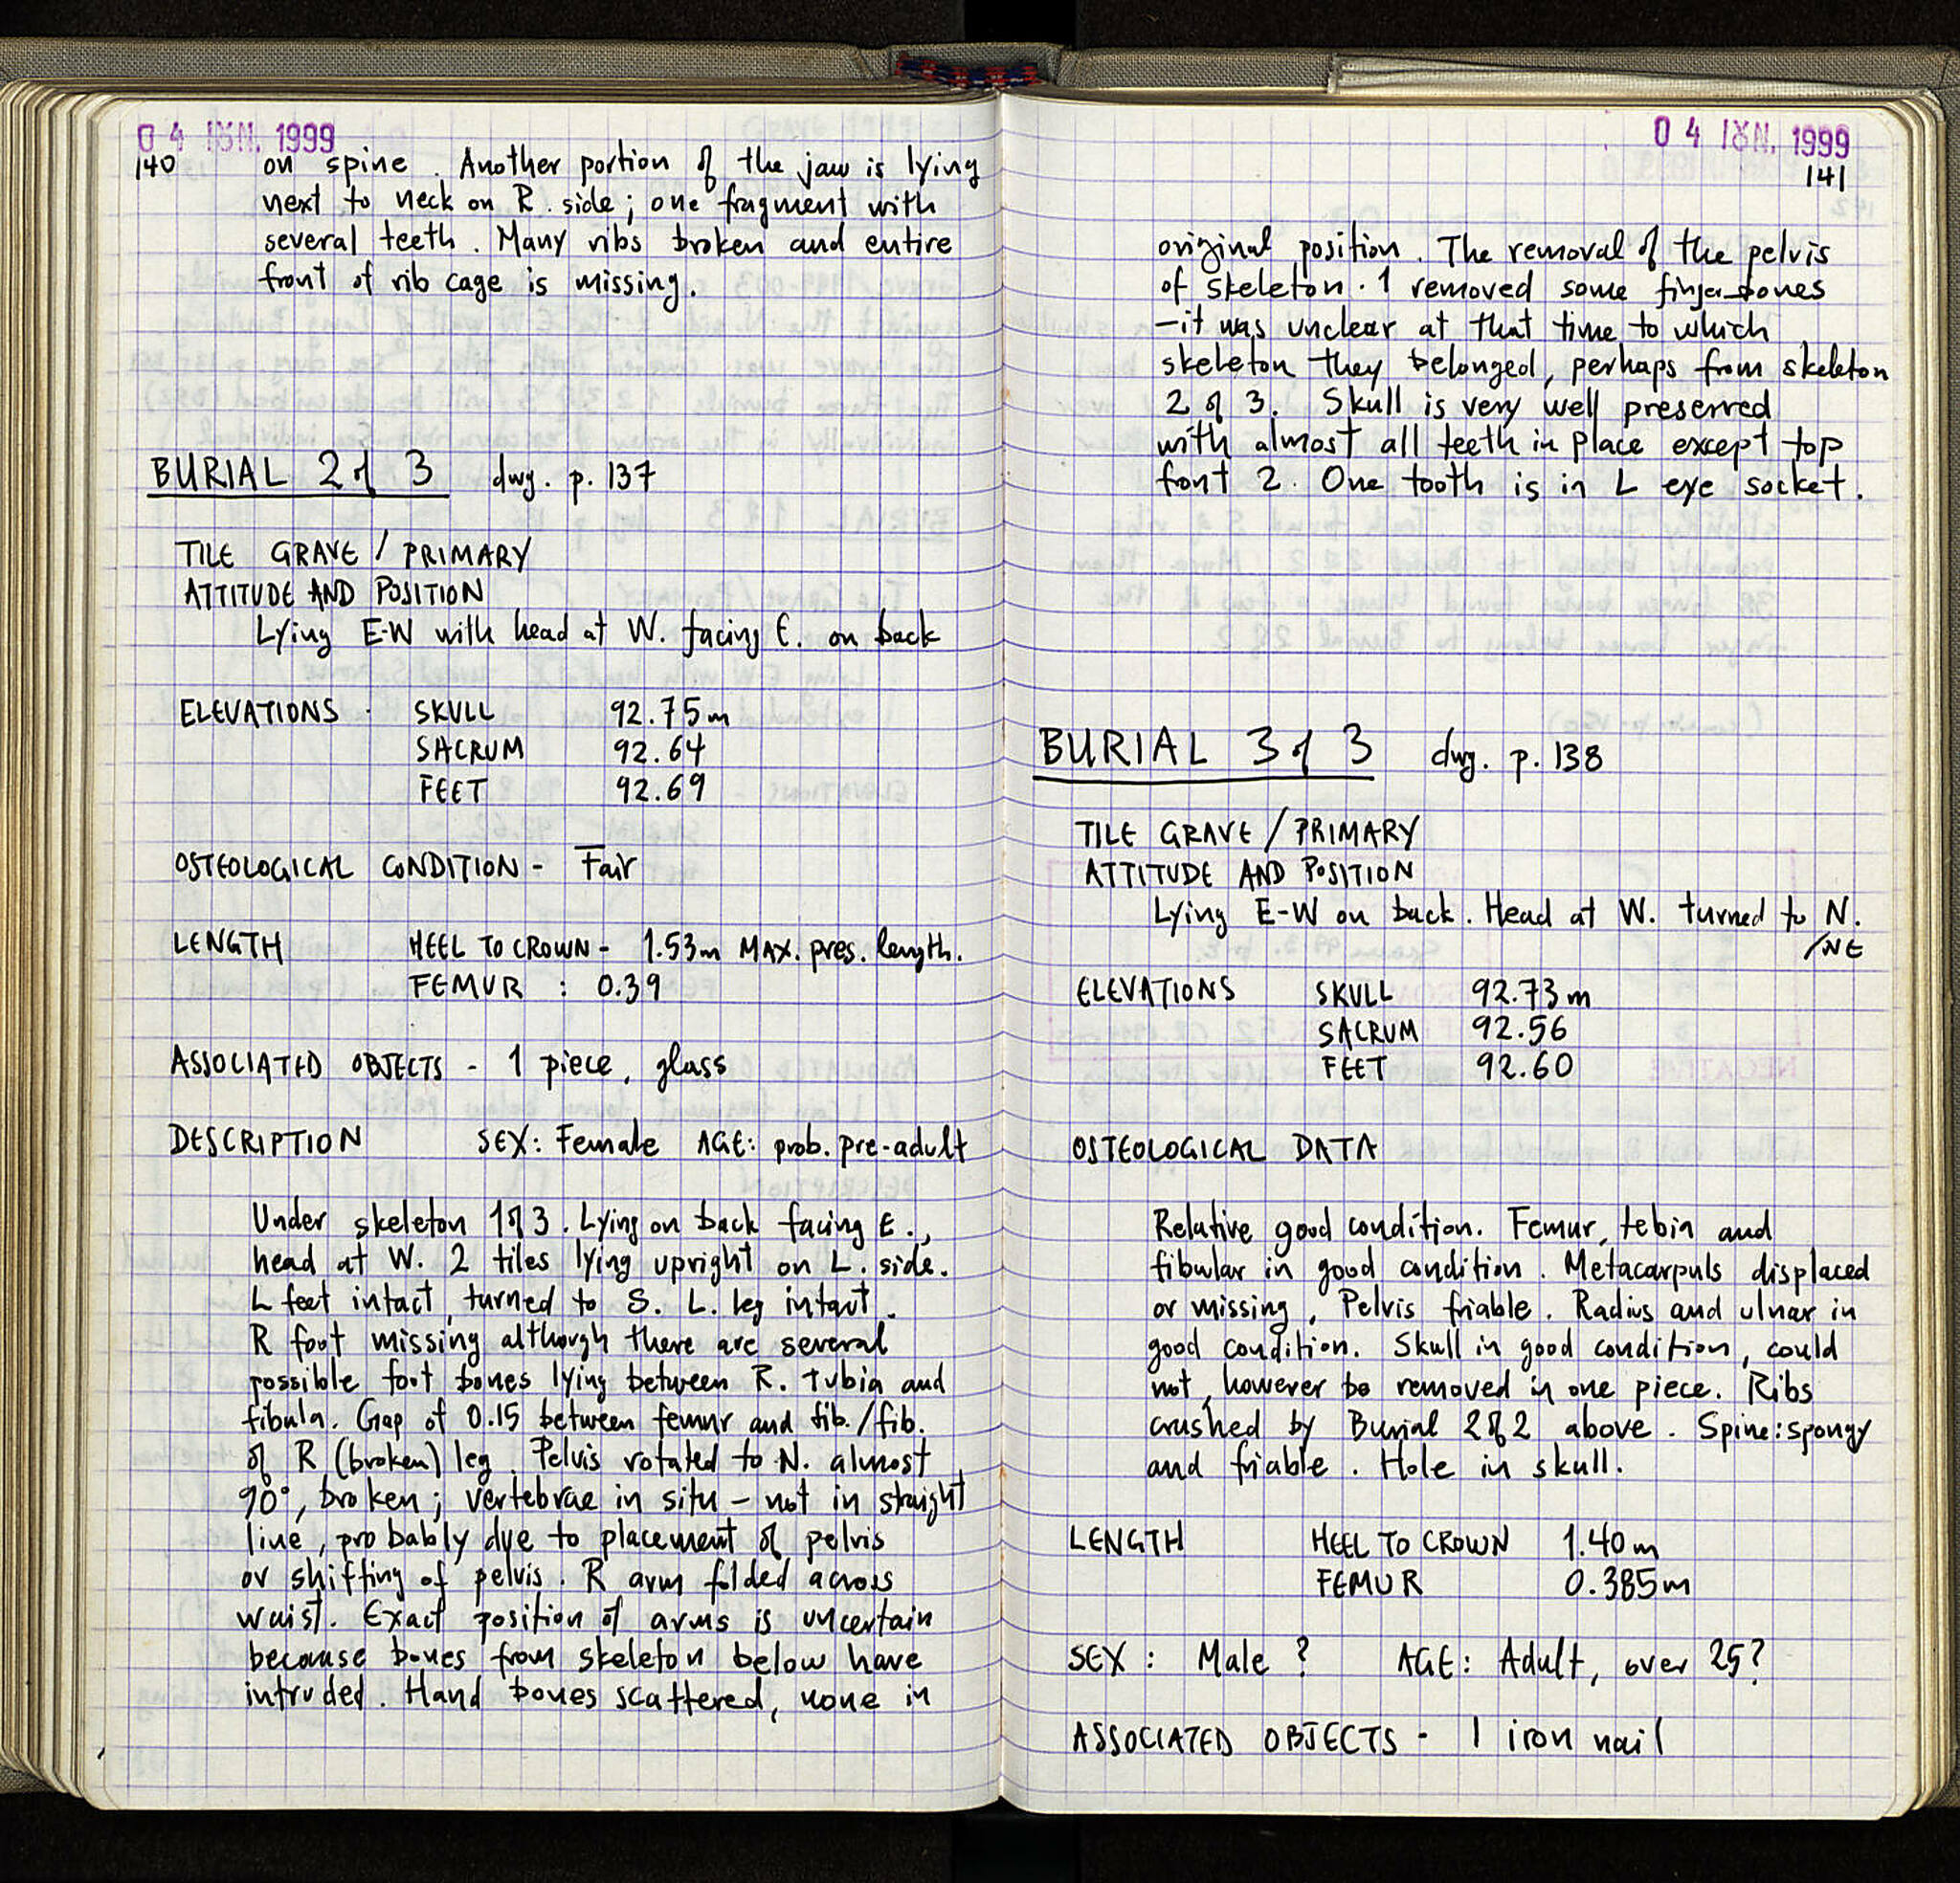 04 ΙΟΥΝ. 1999
140
on spine. Another portion of the jaw is lying
next to neck on R. side; one fragment with
several teeth. Many ribs broken and entire
front of rib cage is missing.
BURIAL 2 of 3 dwg. p. 137
TILE GRAVE / PRIMARY
ATTITUDE AND POSITION
Lying E-W with head at W. facing E. on back
ELEVATIONS - SKULL 92.75m
SACRUM 92.64
FEET 92.69
OSTEOLOGICAL CONDITION - Fair
LENGTH HEEL TO CROWN - 1.53m MAX. pres. length.
FEMUR : 0.39
ASSOCIATED OBJECTS - 1 piece, glass
DESCRIPTION SEX: Female AGE: prob. pre-adult
Under skeleton 1 of 3. Lying on back facing E.,
head at W. 2 tiles lying upright on L. side.
L feet intact, turned to S. L. leg intact.
R foot missing although there are several
possible foot bones lying between R. tubia and
fibula. Gap of 0.15 between femur and tib./fib.
of R (broken) leg. Pelvis rotated to N. almost
90°, broken; vertebrae in situ - not in straight
line, probably due to placement of pelvis
or shifting of pelvis. R arm folded across
waist. Exact position of arms is uncertain
because bones from skeleton below have
intruded. Hand bones scattered, none in
04 ΙΟΥΝ. 1999
141
original position. The removal of the pelvis
of skeleton. 1 removed some finger bones
- it was unclear at that time to which
skeleton they belonged, perhaps from skeleton
2 of 3. Skull is very well preserved
with almost all teeth in place except top
font 2. One tooth is in L eye socket.
BURIAL 3 of 3 dwg. p. 138
TILE GRAVE / PRIMARY
ATTITUDE AND POSITION
Lying E-W on back. Head at W. turned to N.
/NE
ELEVATIONS SKULL 92.73m
SACRUM 92.56
FEET 92.60
OSTEOLOGICAL DATA
Relative good condition. Femur, tebia and
fibular in good condition. Metacarpuls displaced
or missing, Pelvis friable. Radius and ulnar in
good condition. Skull in good condition, could
not, however be removed in one piece. Ribs
crushed by Burial 2 of 2 above. Spine: spongy
and friable. Hole in skull.
LENGTH HEEL TO CROWN 1.40m
FEMUR 0.385m
SEX: Male ? AGE: Adult, over 25?
ASSOCIATED OBJECTS - 1 iron nail